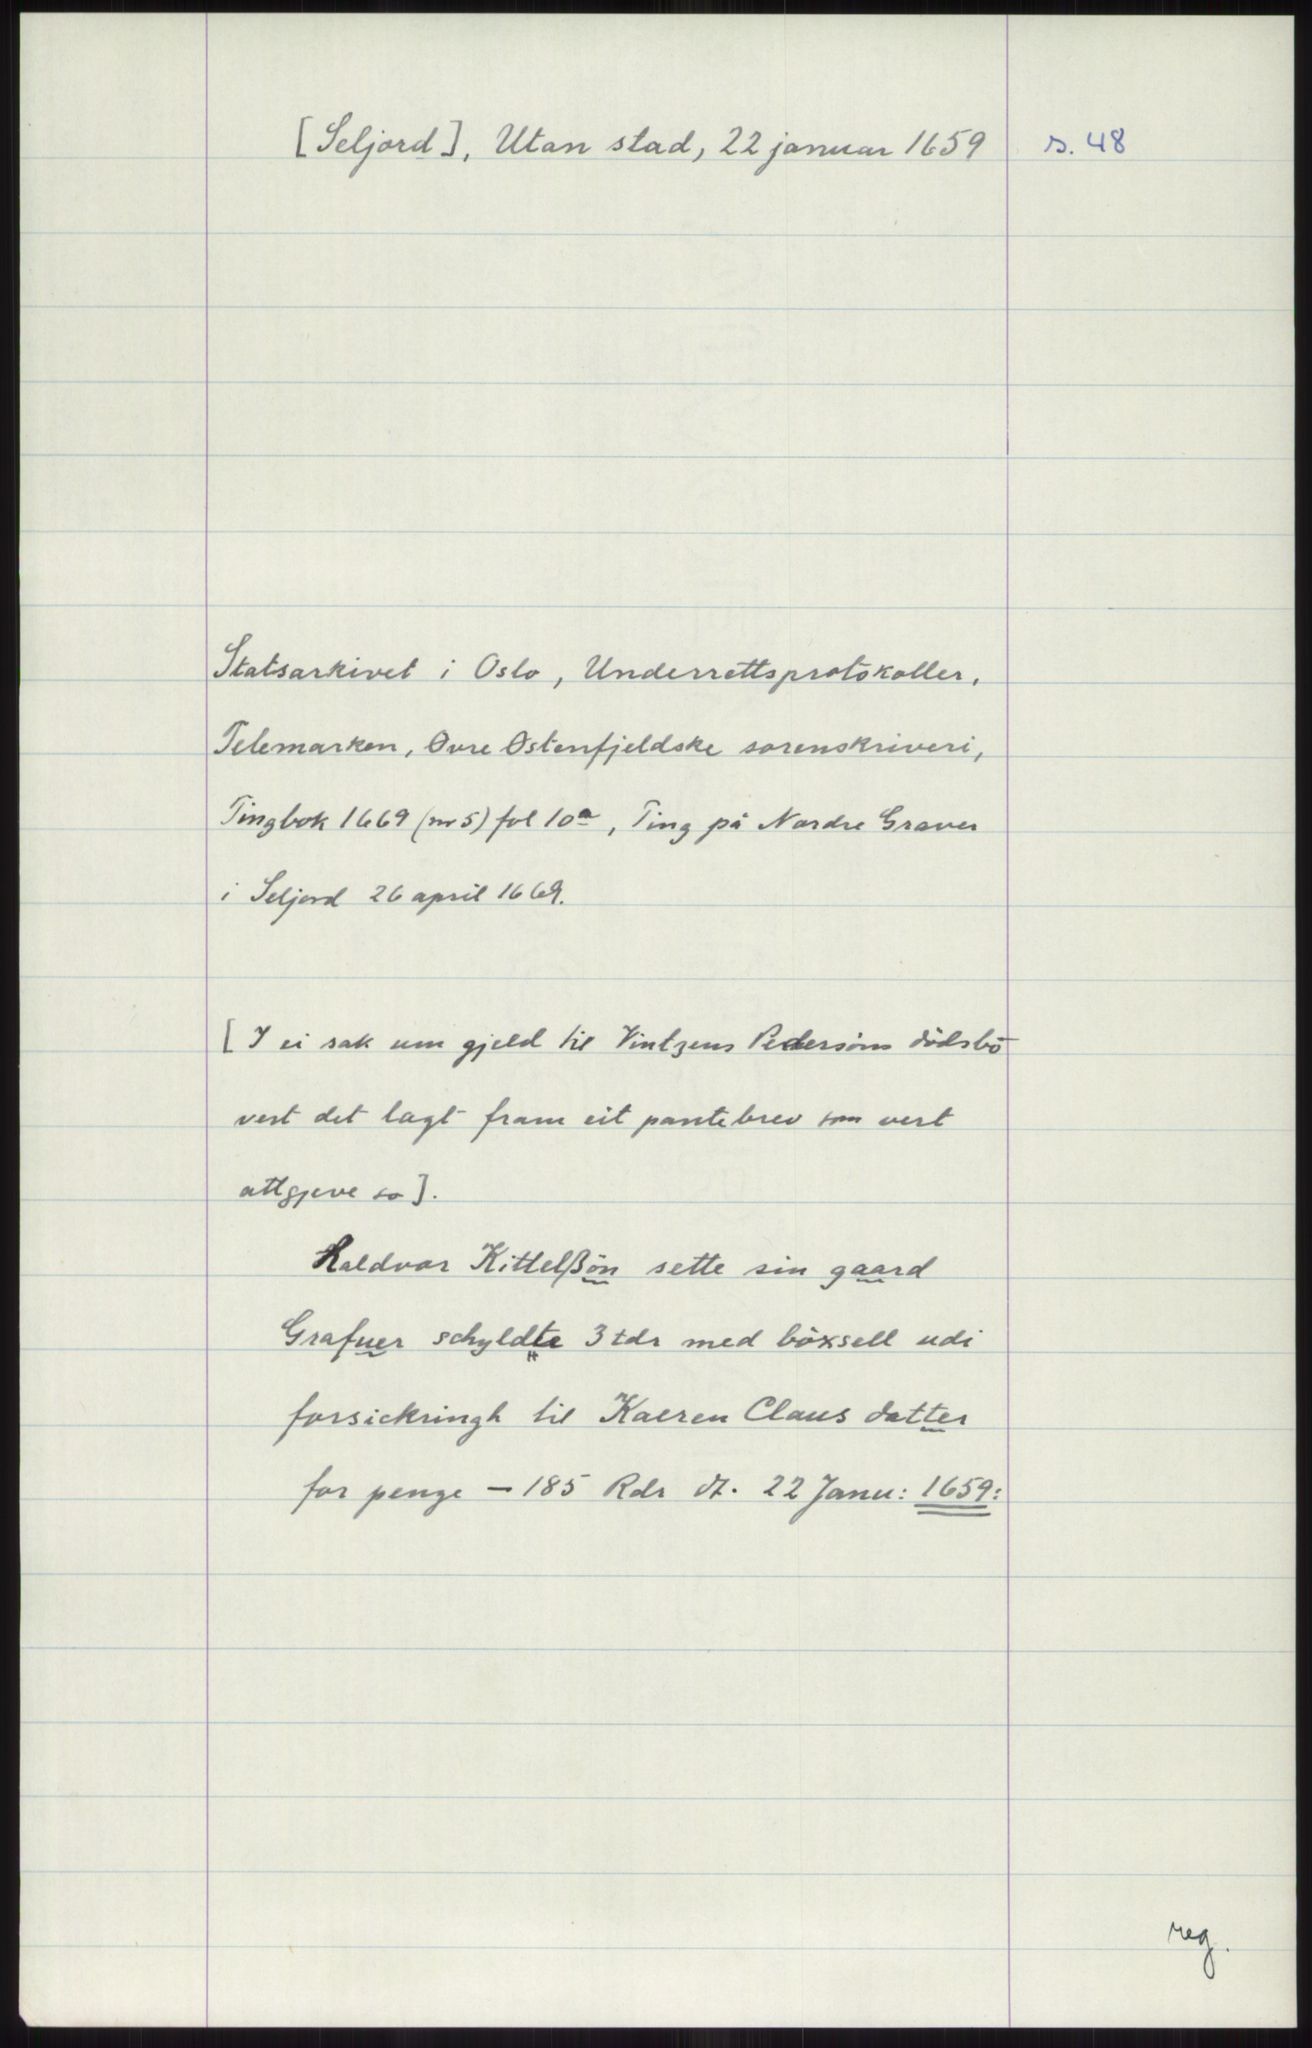 [Seljord], Utan stad, 22 januar 1659 s. 48
Statsarkivet i Oslo, Underrettsprotokoller,
Telemarken, Øvre Østenfjeldske sorenskriveri,
Tingbok 1669 (nr 5) fol 10a, Ting på Nordre Graver
i Seljord 26 april 1669.
[I ei sak um gjeld til Vintzens Pedersöns dödsbö
vert det lagt fram eit pantebrev som vert
attgjeve so].
Haldvor Kittelßön sette sin gaard
Grafuer schyldte 3 tdr med böxsell udi
forsickringh til Kaeren Claus datter
for penge – 185 Rdr dt. 22 Janu: 1659:
reg.